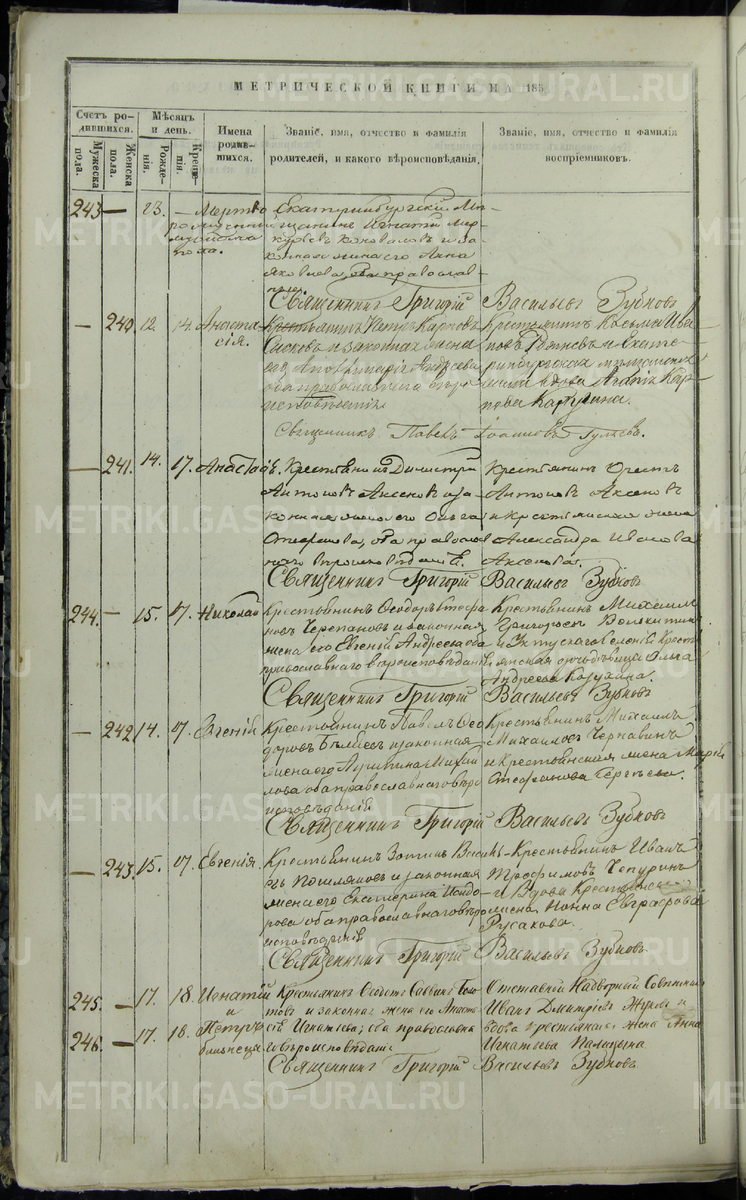 МЕТРИЧЕСКОЙ КНИГИ НА 185
Счетъ родившихся.
Мужеска пола.
Женска пола.
Мѣсяцъ и день.
Рожденія.
Крещенія.
Имена родившихся.
Званіе, имя, отчество и фамилія родителей, и какого вѣроисповѣданія.
Званіе, имя, отчество и фамилія воспріемниковъ.
243 — 23. — Мертво
рожденный
пола.
Екатеринбургскій Мѣ-
щанинъ Игнатій Мер-
курьевъ Коноваловъ и за-
конная жена его Анна
Яковлева, оба православ-
Священникъ Григорій Васильевъ Зубковъ
— 240 12. 14. Анаста-
сія.
Крестьянинъ Петръ Карповъ
и законная жена
его, Андреева
оба православнаго вѣро-
исповѣданія.
Крестьянинъ Косьма Ива-
новъ и Екате-
ринбургская мѣщанская
вдова Кар-
пова
Священникъ Павелъ Іоанновъ Гуляевъ.
— 241. 14. 17.
Крестьянинъ Димитрій
Антоновъ Аксеновъ и за-
конная жена его Ольга
Стефанова, оба православ
наго вѣроисповѣданія.
Крестьянинъ Орестъ
Антоновъ Аксеновъ
и Крестьянская жена
Александра Иванова
Аксенова.
Священникъ Григорій Васильевъ Зубковъ
244. — 15. 17. Николай
Крестьянинъ Ѳеодоръ Стефа
новъ Черепановъ и законная
жена его Евгенія Андреева оба
православнаго вѣроисповѣданія
Крестьянинъ Михаилъ
Григорьевъ
и селенія Крест
янская дѣвица Ольга
Андреева
Священникъ Григорій Васильевъ Зубковъ
— 242 14. 17. Евгенія
Крестьянинъ Павелъ Ѳео
доровъ и законная
жена его Михай
лова оба православнаго вѣро
исповѣданія
Крестьянинъ Михаилъ
Михаиловъ
и крестьянская жена Марія
Стефанова
Священникъ Григорій Васильевъ Зубковъ
— 243. 15. 17. Евгенія.
Крестьянинъ Зотикъ Василь-
евъ и законная
жена его Екатерина Исидо-
рова оба православнаго вѣро
исповѣданія
Крестьянинъ Иванъ
Трофимовъ Чепуринъ
и Вдова Крестьянская
жена Нонна Евграфова
Русакова.
Священникъ Григорій Васильевъ Зубковъ
245. — 17. 18. Игнатій
и
246. — 17. 18. Петръ
близнецы
Крестьянинъ Саввинъ
и законная жена его Анаста-
сія Игнатьева; оба православна
го вѣроисповѣданія
Отставной Надворный Совѣтникъ
Иванъ Дмитріевъ
вдова крестьянская жена Анна
Игнатьева Палицына
Священникъ Григорій Васильевъ Зубковъ
METRIKI.GASO-URAL.RU